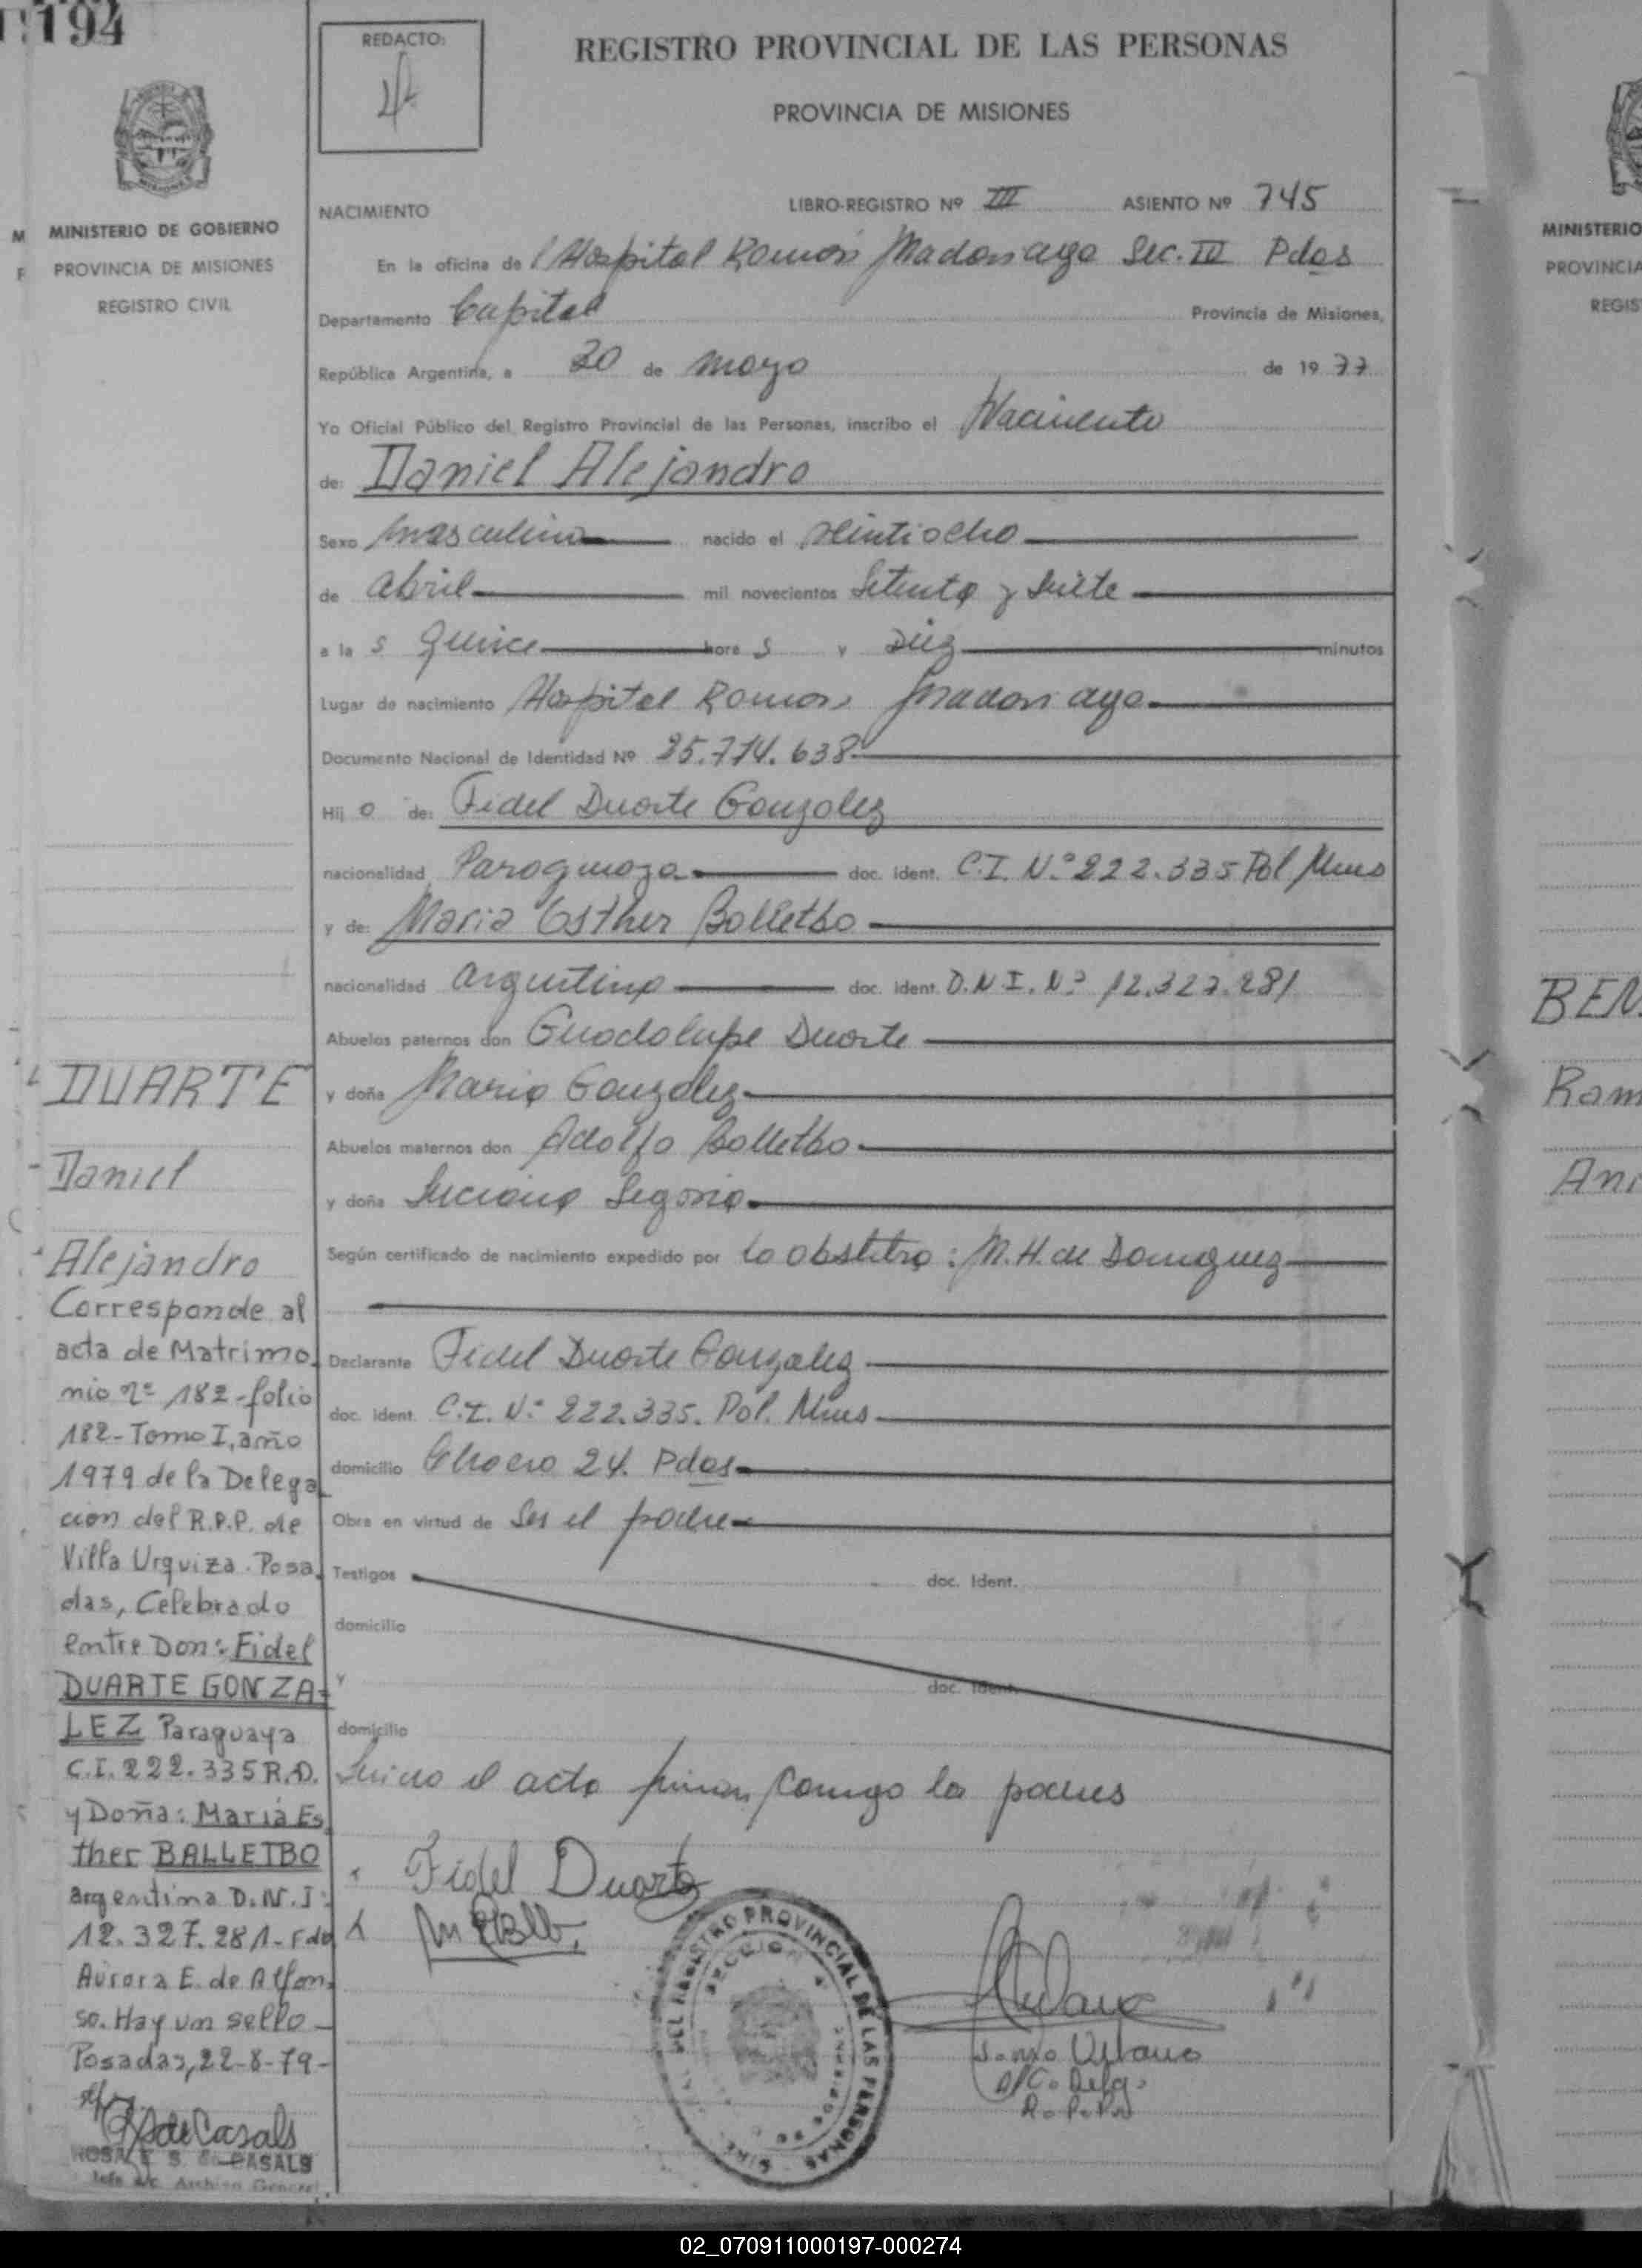 194
REDACTO:
REGISTRO PROVINCIAL DE LAS PERSONAS
PROVINCIA DE MISIONES
MINISTERIO DE GOBIERNO
PROVINCIA DE MISIONES
REGISTRO CIVIL
NACIMIENTO LIBRO-REGISTRO Nº III ASIENTO Nº 745
En la oficina del Hospital Ramon Madariaga Sec. IV Pdas
Departamento Capital Provincia de Misiones,
República Argentina, a 20 de mayo de 1977
Yo Oficial Público del Registro Provincial de las Personas, inscribo el Nacimiento
de: Daniel Alejandro
Sexo masculino nacido el veintiocho
de abril mil novecientos setenta y siete
a la s quince hora s y diez minutos
Lugar de nacimiento Hospital Ramon Madariaga
Documento Nacional de Identidad Nº 25.714.638
Hij o de: Fidel Duarte Gonzalez
nacionalidad Paraguaya doc. ident. C.I. Nº 222.335 Pol Mnes
y de: Maria Esther Balletbo
nacionalidad argentina doc. ident. D.N.I. Nº 12.327.281
Abuelos paternos don Guadalupe Duarte
y doña Maria Gonzalez
Abuelos maternos don Adolfo Balletbo
y doña Luciana Segovia
Según certificado de nacimiento expedido por la obstetra: M.H. de Dominguez
Declarante Fidel Duarte Gonzalez
doc. ident. C.I. Nº 222.335. Pol. Mnes
domicilio 24. Pdas
Obra en virtud de ser el padre
Testigos doc. Ident.
domicilio
y doc. Ident.
domicilio
el acta firman conmigo los padres
Fidel Duarte
DUARTE
Daniel
Alejandro
Corresponde al
acta de Matrimo
nio nº 182-folio
182-Tomo I, año
1979 de la Delega
cion del R.P.P. de
Villa Urquiza. Posa
das, Celebrado
entre Don: Fidel
DUARTE GONZA-
LEZ Paraguaya
C.I. 222.335 R.D.
y Doña: María Es
ther BALLETBO
argentina D.N.I:
12.327.281-Fdo
Aurora E. de Alfon
so. Hay un sello-
Posadas, 22-8-79-
de Casals
ROSA E. S. de CASALS
Jefe a/c Archivo General
REGISTRO PROVINCIAL DE LAS PERSONAS
SECCION 4
Urbano
MINISTERIO
PROVINCIA
REGIS
BEN
Ram
Ani
02_070911000197-000274